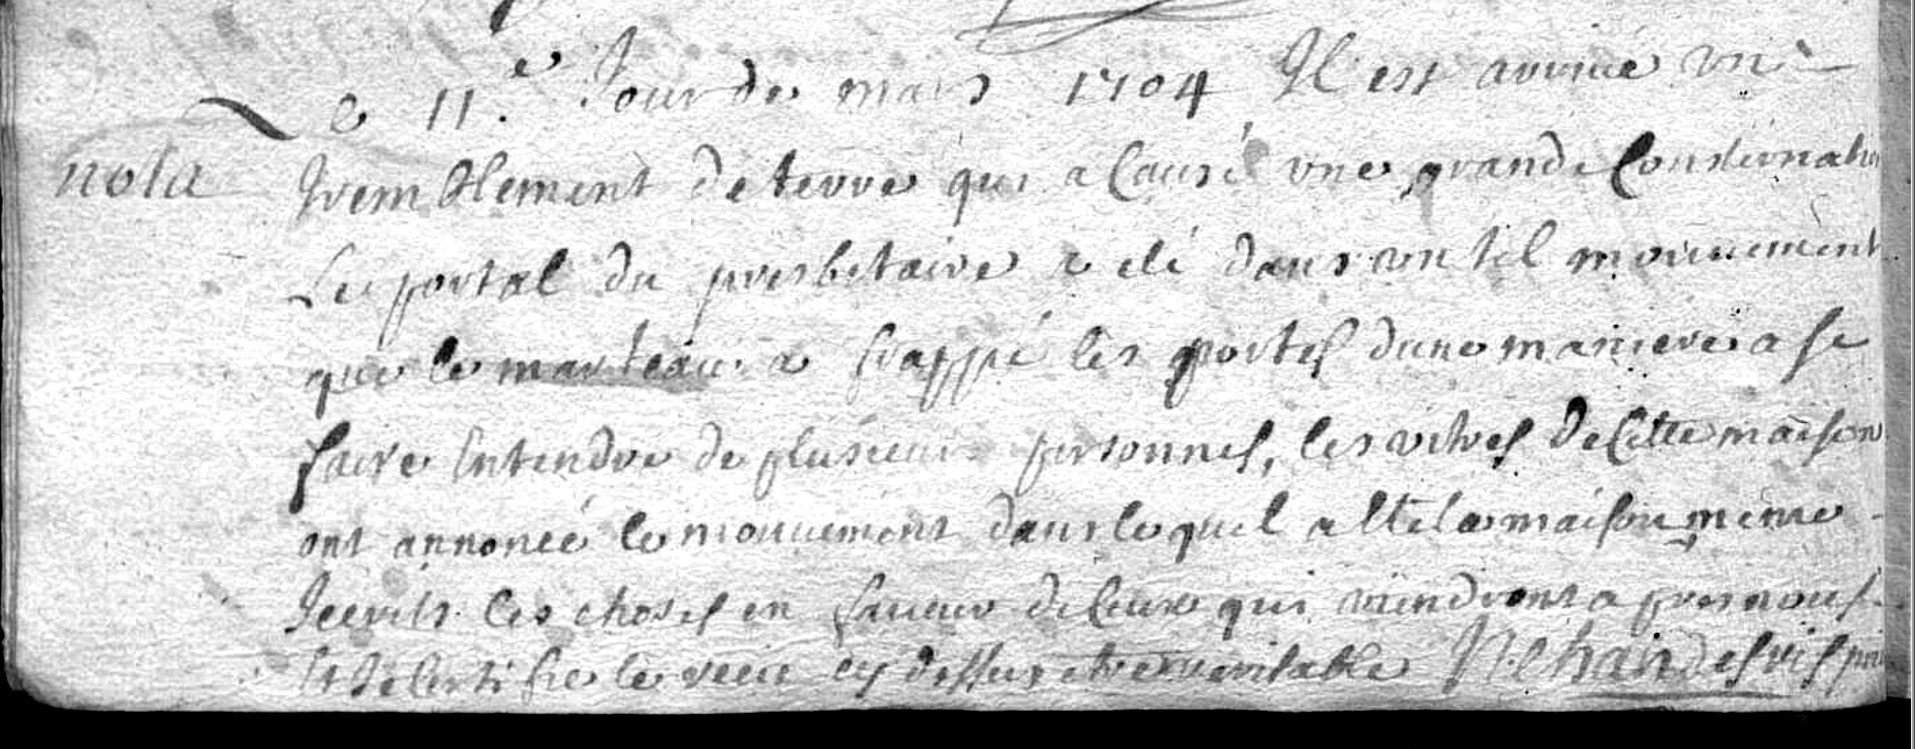 Le 11.e Jour de mars 1704 Il est arrivé un
nota
tremblement de terre qui a causé une grande consternation
Le portal du presbitaire a eté dans un tel mouuement
que le marteau a frappé les portes dune maniere a se
faire entendre de plusieurs personnes, les vitres de cette maison
ont annoncé le mouuement dans lequel a eté la maison meme
Jecrits ces choses en faueur de ceux qui viendront apres nous
et Je certifie le recit cy dessus etre veritable